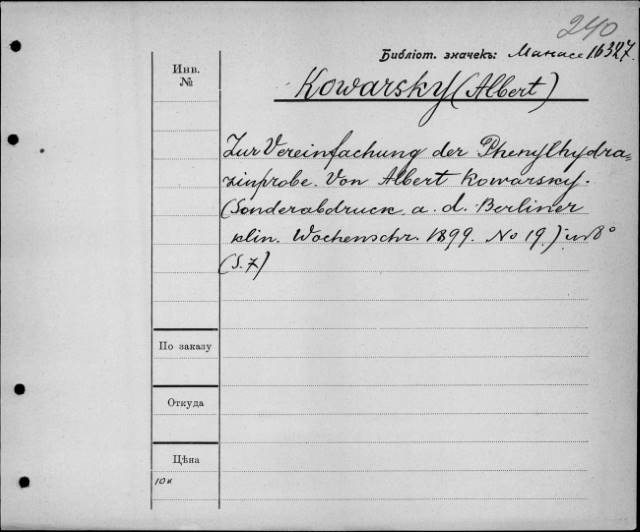 240
Библіот. значекъ: Манасе 16327.
Инв.
№
Kowarsky (Albert)
Zur Vereinfachung der Phenylhydra-
zinprobe. Von Albert Kowarsky.
(Sonderabdruck. a. d. Berliner
klin. Wochenschr. 1899. No 19.) in 8°
(S. 7)
По заказу
Откуда
Цѣна
10 к